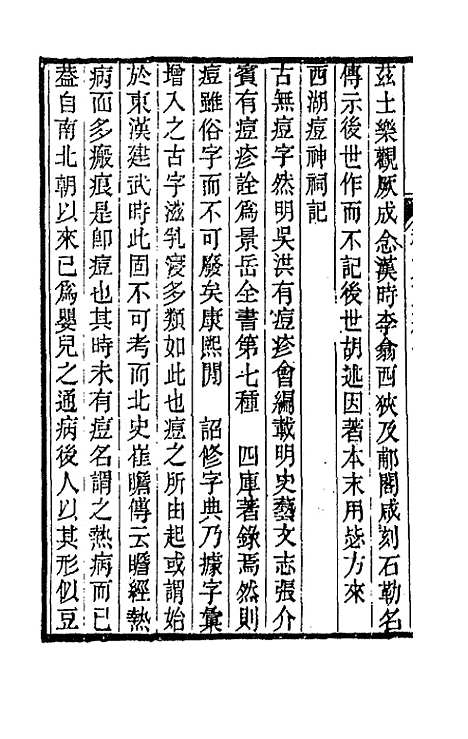 茲土樂觀厥成念漢時李翕西狹及郙閣咸刻石勒名
傳示後世作而不記後世胡述因著本末用毖方來
西湖痘神祠記
古無痘字然明吳洪有痘疹會編載明史藝文志張介
賓有痘疹詮為景岳全書第七種　四庫著錄焉然則
痘雖俗字而不可廢矣康熙閒　詔修字典乃據字彙
增入之古字滋乳寖多類如此也痘之所由起或謂始
於東漢建武時此固不可考而北史崔瞻傳云瞻經熱
病而多瘢痕是卽痘也其時未有痘名謂之熱病而已
葢自南北朝以來已為嬰兒之通病後人以其形似豆